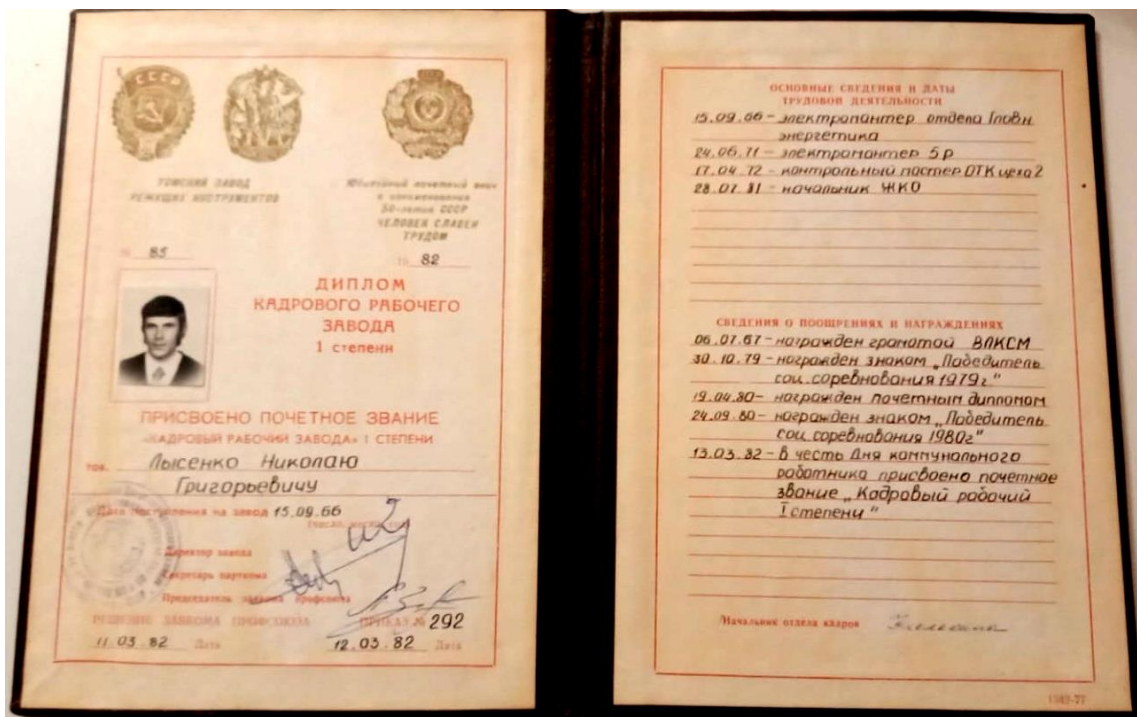 СССР
ТОМСКИЙ ЗАВОД
РЕЖУЩИХ ИНСТРУМЕНТОВ
Юбилейный почетный знак
в ознаменование
50-летия СССР
ЧЕЛОВЕК СЛАВЕН
ТРУДОМ
№ 85
19 82
ДИПЛОМ
КАДРОВОГО РАБОЧЕГО
ЗАВОДА
1 степени
ПРИСВОЕНО ПОЧЕТНОЕ ЗВАНИЕ
«КАДРОВЫЙ РАБОЧИЙ ЗАВОДА» 1 СТЕПЕНИ
тов. Лысенко Николаю
Григорьевичу
Дата поступления на завод 15.09.66
(число, месяц, год)
Директор завода
Секретарь парткома
Председатель завкома профсоюза
РЕШЕНИЕ ЗАВКОМА ПРОФСОЮЗА ПРИКАЗ № 292
11.03.82 Дата 12.03.82 Дата
ОСНОВНЫЕ СВЕДЕНИЯ И ДАТЫ
ТРУДОВОЙ ДЕЯТЕЛЬНОСТИ
15.09.66 - электромантер отдела Главн
энергетика
24.06.71 - электромантер 5р
17.04.72 - контрольный мастер ОТК цеха 2
28.07.81 - начальник ЖКО
СВЕДЕНИЯ О ПООЩРЕНИЯХ И НАГРАЖДЕНИЯХ
06.07.67 - награжден грамотой ВЛКСМ
30.10.79 - награжден знаком „Победитель
соц. соревнования 1979г"
19.04.80 - награжден почетным дипломом
24.09.80 - награжден знаком „Победитель
соц. соревнования 1980г"
13.03.82 - В честь Дня коммунального
работника присвоено почетное
звание „Кадровый рабочий
I степени"
Начальник отдела кадров
1983-77